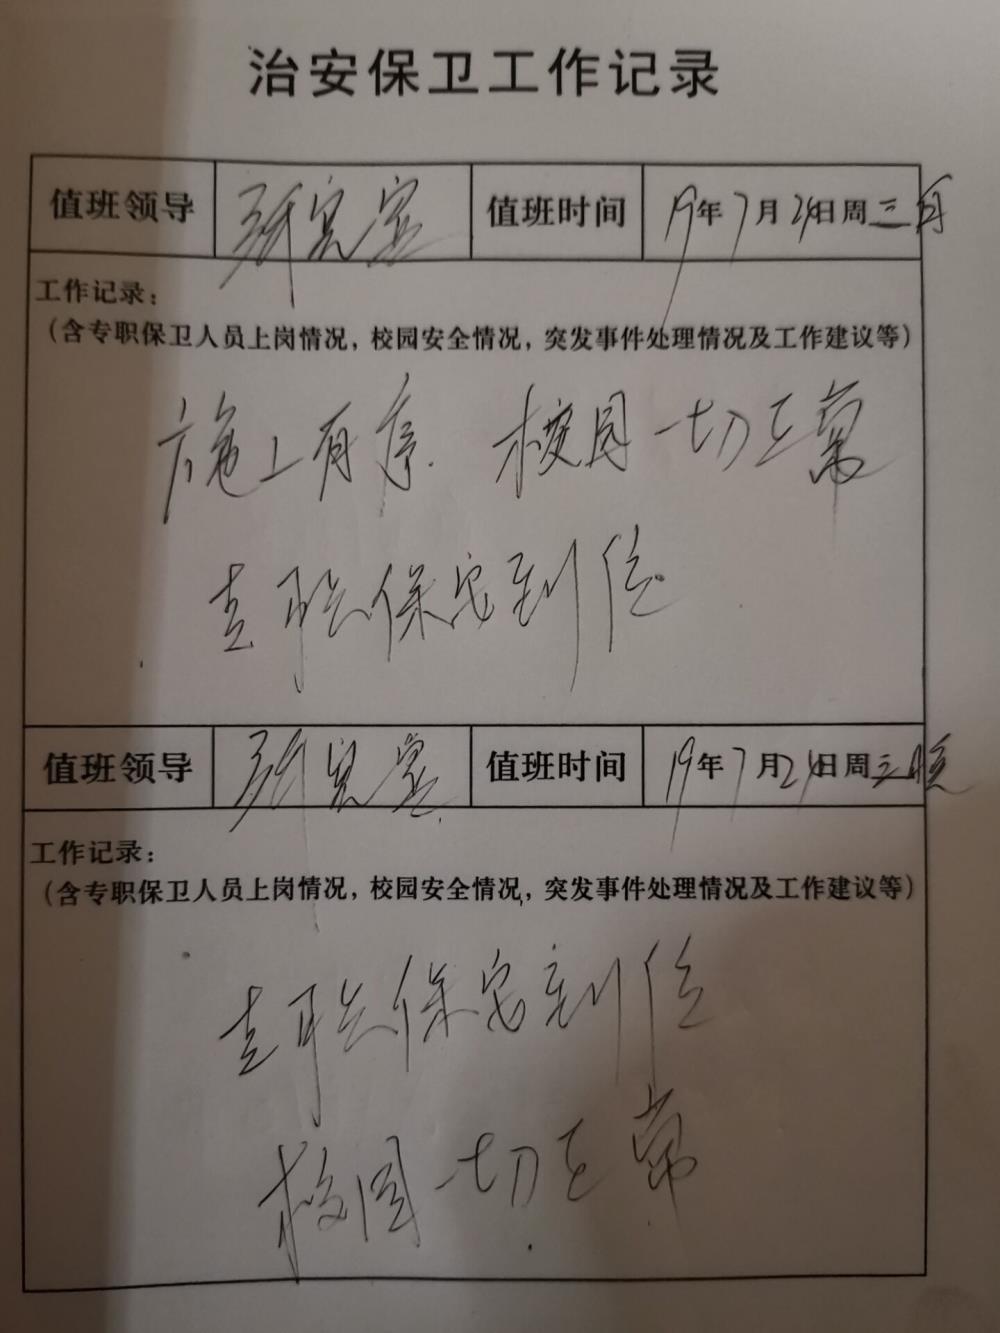 治安保卫工作记录
值班领导 值班时间 19年7月24日周三
工作记录：
（含专职保卫人员上岗情况，校园安全情况，突发事件处理情况及工作建议等）
施工有序. 校园一切正常
专职保安到位
值班领导 值班时间 19年7月24日周三晚
工作记录：
（含专职保卫人员上岗情况，校园安全情况，突发事件处理情况及工作建议等）
专职保安到位
校园一切正常.